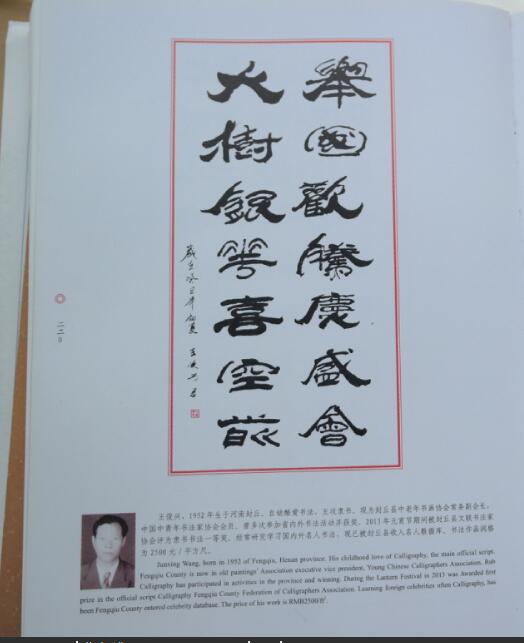 舉國歡騰慶盛會
火樹銀華喜空前
歲在癸巳年初夏 王俊兴書
二二〇
王俊兴，1952 年生于河南封丘，自幼酷爱书法，主攻隶书，现为封丘县中老年书画协会常务副会长，
中国中青年书法家协会会员，曾多次参加省内外书法活动并获奖，2013 年元宵节期间被封丘县文联书法家
协会评为隶书书法一等奖，经常研究学习国内外名人书法，现已被封丘县收入名人数据库，书法作品润格
为 2500 元 / 平方尺。
Junxing Wang, born in 1952 of Fengqiu, Henan province. His childhood love of Calligraphy, the main official script.
Fengqiu County is now in old paintings' Association executive vice president, Young Chinese Calligraphers Association. Rub
Calligraphy has participated in activities in the province and winning. During the Lantern Festival in 2013 was Awarded first
prize in the official script Calligraphy Fengqiu County Federation of Calligraphers Association. Learning foreign celebrities often Calligraphy, has
been Fengqiu County entered celebrity database. The price of his work is RMB2500/ft².